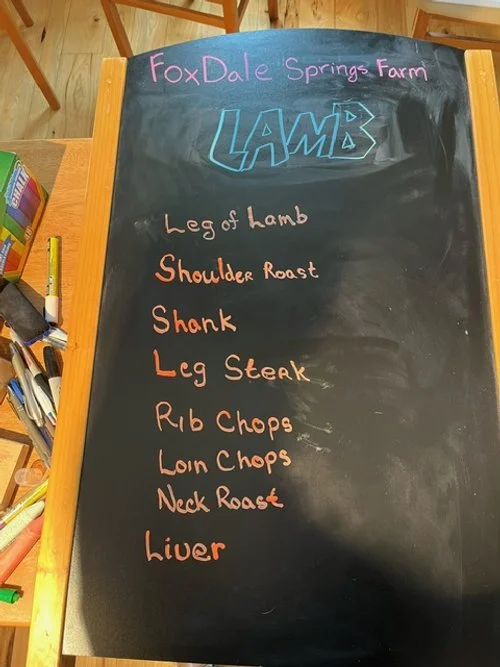 FoxDale Springs Farm
LAMB
Leg of Lamb
Shoulder Roast
Shank
Leg Steak
Rib Chops
Loin Chops
Neck Roast
Liver
CHALK